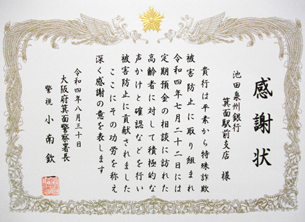 感謝状
池田泉州銀行
箕面駅前支店 様
貴行は平素から特殊詐欺
被害防止に取り組まれ
令和四年七月二十二日には
定期預金の相談に訪れた
高齢者に対して積極的な
声かけと確認などを行い
被害防止に貢献されました
ここにその功労を称え
深く感謝の意を表します
令和四年八月三十日
大阪府箕面警察署長
警視 小南 欽一